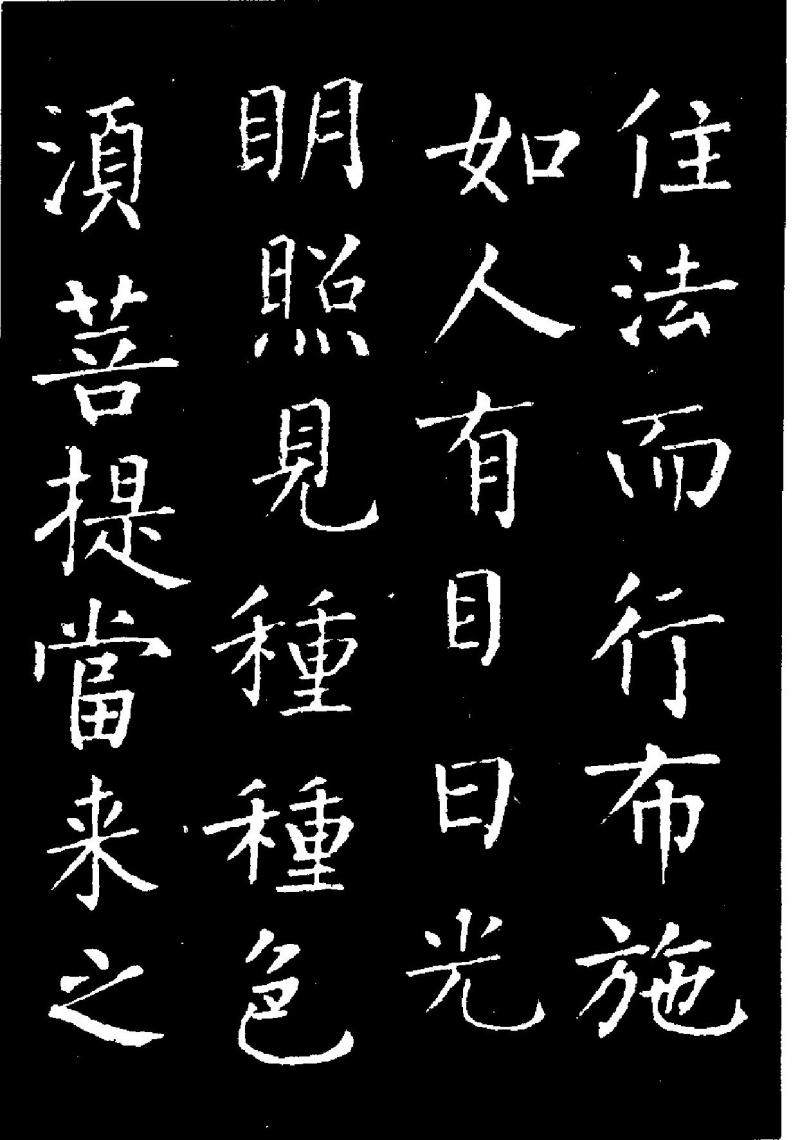 住法而行布施
如人有目日光
明照見種種色
須菩提當来之